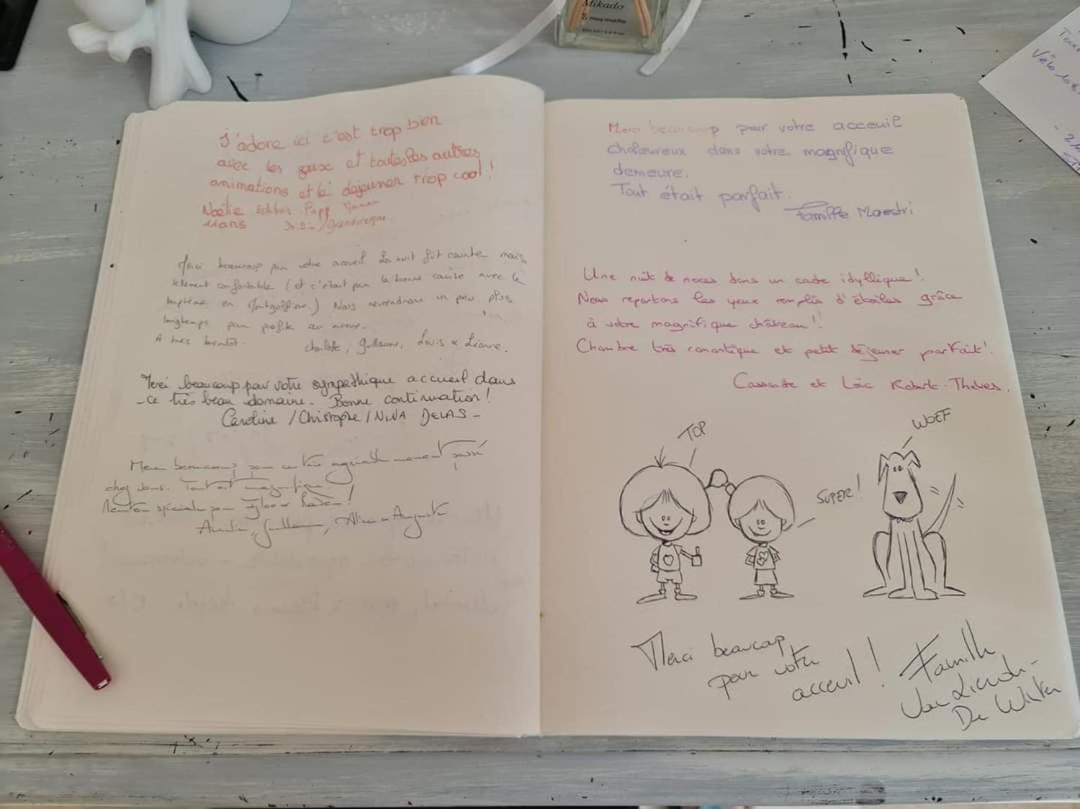 Mikado
J'adore ici c'est trop bien
avec les jeux et toutes les autres
animations et le déjeuner trop cool!
Noélie
Merci beaucoup pour votre accueil. La nuit fût courte mais
tellement confortable (et c'était pour la bonne cause avec le
baptême en Montgolfière.) Nous reviendrons un peu plus
longtemps pour profiter
A très bientôt.
Charlotte, Guillaume, Louis &
Merci beaucoup pour votre sympathique accueil dans
ce très beau domaine. Bonne continuation!
Caroline / Christophe / NINA DELAS -
Merci beaucoup pour ce très agréable moment passé
chez vous. Tout est magnifique
Mention spéciale pour
Merci beaucoup pour votre acceuil
chaleureux dans votre magnifique
demeure.
Tout était parfait.
Famille Maestri
Une nuit de noces dans un cadre idyllique!
Nous repartons les yeux remplis d'étoiles grâce
à votre magnifique château!!
Chambre très romantique et petit déjeuner parfait!
et Loïc Robert-
TOP
SUPER!
WOEF
Merci beaucoup
pour votre
acceuil!
Famille
De